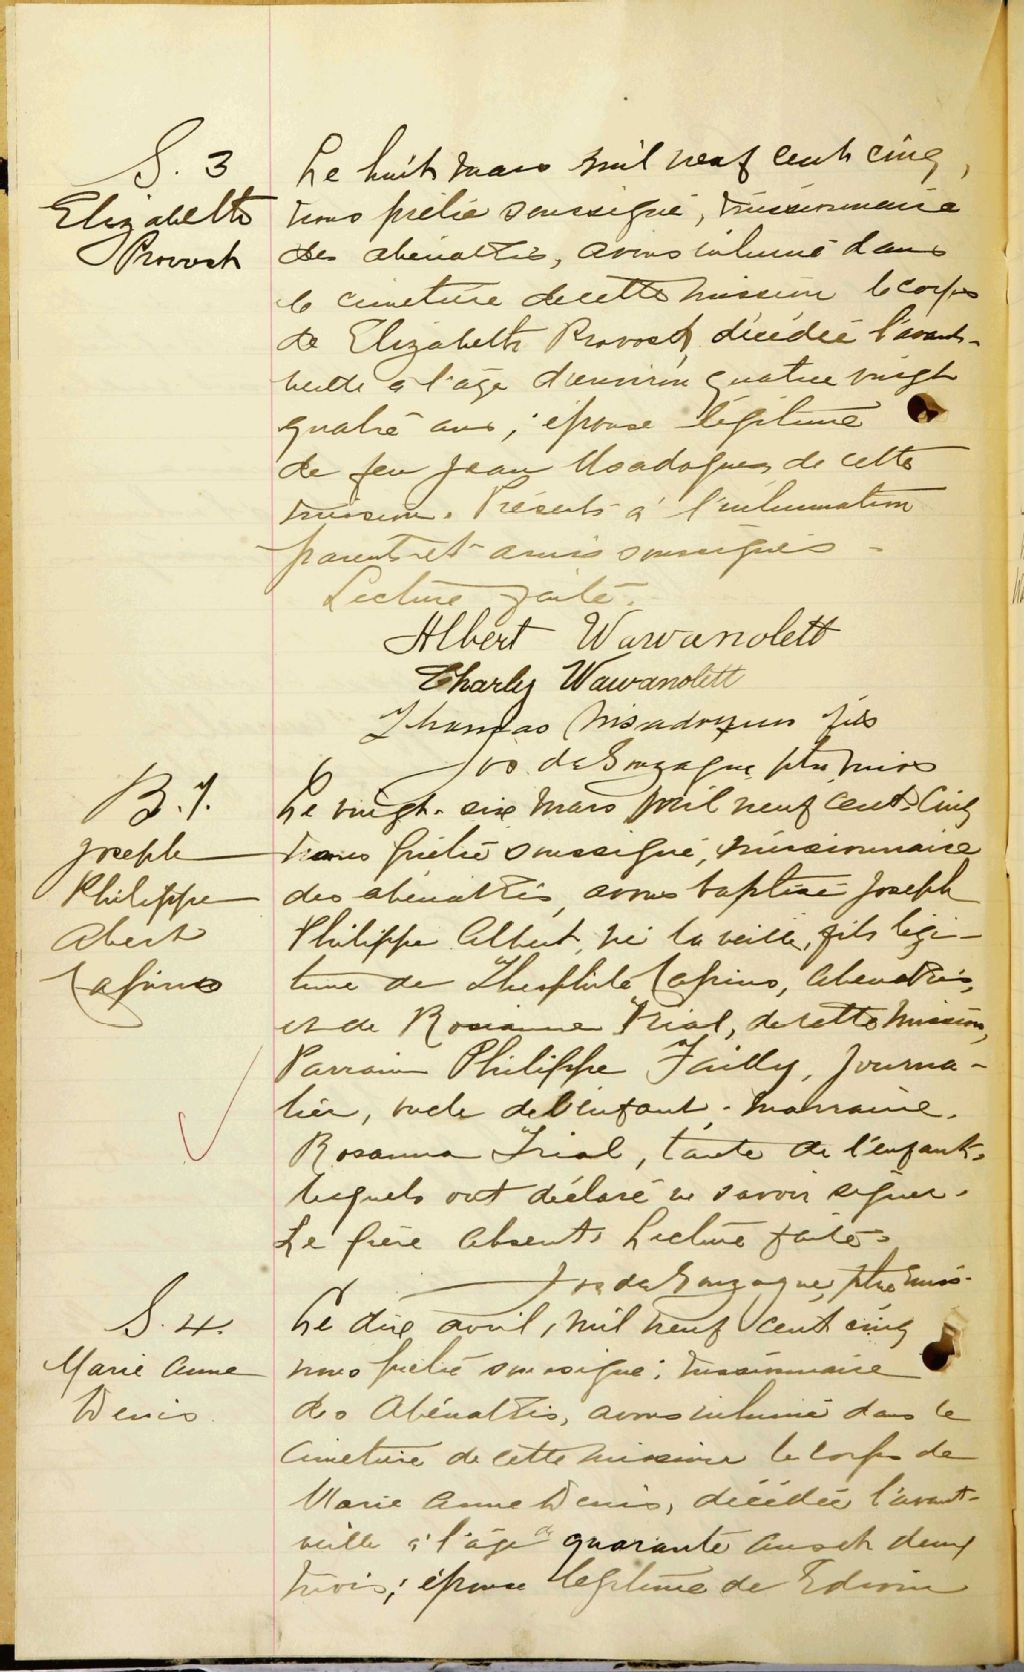 S. 3
Elizabeth
Provost
Le huit mars mil neuf cent cinq,
nous prêtre soussigné, missionnaire
des abénakis, avons inhumé dans
le cimetière de cette mission le corps
de Elizabeth Provost, décédée l'avant-
veille à l'âge d'environ quatre vingt
quatre ans, épouse légitime
de feu Jean Msadoques de cette
mission. Présents à l'inhumation
parents et amis soussignés -
Lecture faite.
Albert Wawanolett
Charley Wawanolett
Thomas Msadoques fils
Jos. de Gonzague ptre miss
B. 7.
Joseph
Philippe
Abert
Tapins
Le vingt-six mars mil neuf cent cinq
nous prêtre soussigné, missionnaire
des abénakis, avons baptisé Joseph
Philippe Albert, né la veille, fils légi-
time de Théophile Tapins, abénakis,
et de Rosianne Trial, de cette mission,
Parrain Philippe Failly, journa-
lier, oncle de l'enfant; marraine,
Rosanna Trial, tante de l'enfant,
lesquels ont déclaré ne savoir signer.
Le père absent. Lecture faite.
Jos de Gonzague, ptre miss.
S. 4.
Marie Anne
Denis
Le dix avril, mil neuf cent cinq
nous prêtre soussigné, missionnaire
des Abénakis, avons inhumé dans le
cimetière de cette mission le corps de
Marie Anne Denis, décédée l'avant-
veille à l'âge de quarante ans et deux
mois; épouse légitime de Edwin